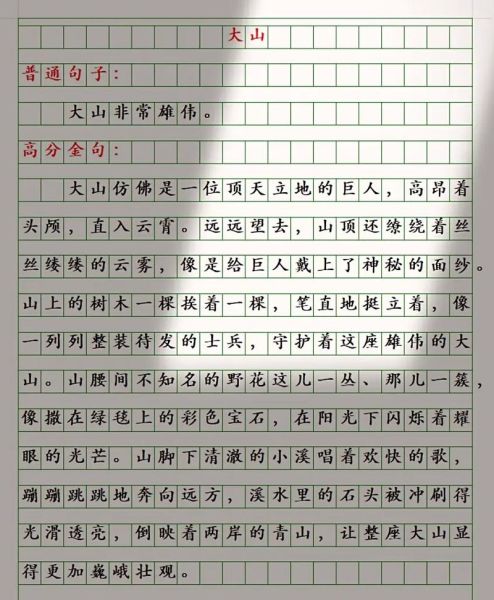 大山
普通句子：
大山非常雄伟。
高分金句：
大山仿佛是一位顶天立地的巨人，高昂着
头颅，直入云霄。远远望去，山顶还缭绕着丝
丝缕缕的云雾，像是给巨人戴上了神秘的面纱。
山上的树木一棵挨着一棵，笔直地挺立着，像
一列列整装待发的士兵，守护着这座雄伟的大
山。山腰间不知名的野花这儿一丛、那儿一簇，
像撒在绿毯上的彩色宝石，在阳光下闪烁着耀
眼的光芒。山脚下清澈的小溪唱着欢快的歌，
蹦蹦跳跳地奔向远方，溪水里的石头被冲刷得
光滑透亮，倒映着两岸的青山，让整座大山显
得更加巍峨壮观。